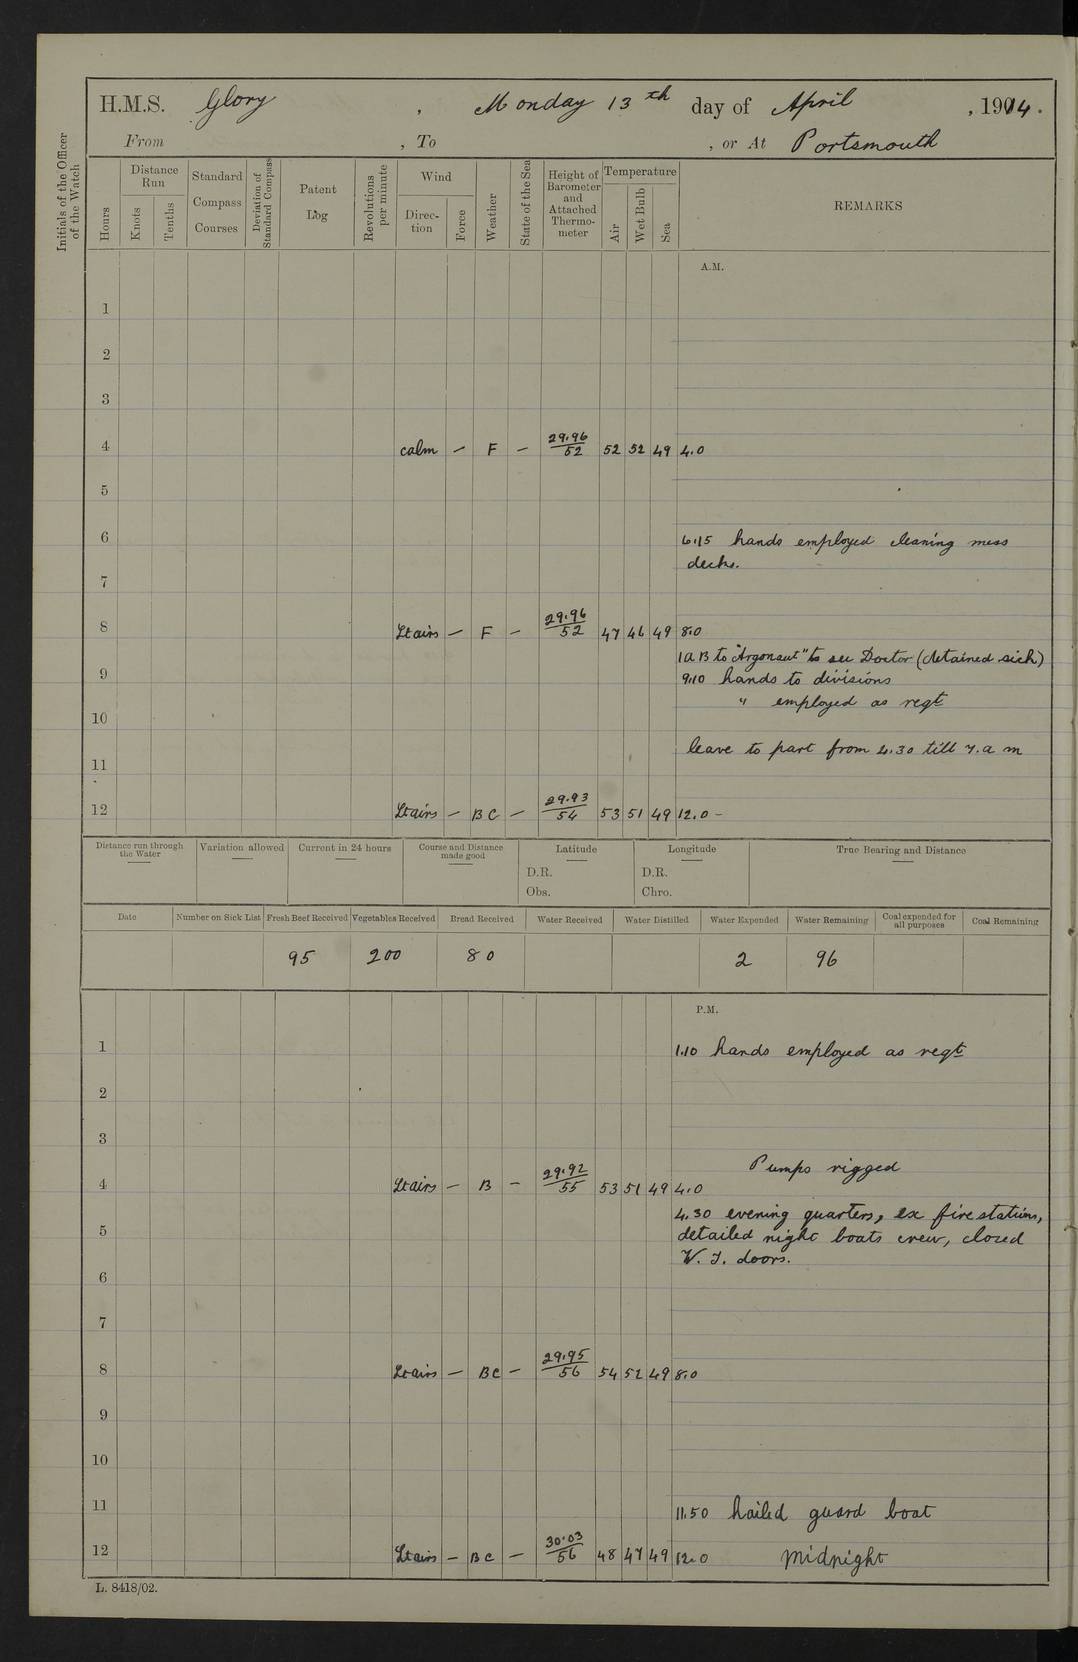 H.M.S. Glory , Monday 13th day of April , 1914.
From , To , or At Portsmouth
Initials of the Officer of the Watch
Hours
Distance Run
Knots Tenths
Standard Compass Courses
Deviation of Standard Compass
Patent Log
Revolutions per minute
Wind
Direction Force
Weather
State of the Sea
Height of Barometer and Attached Thermometer
Temperature
Air Wet Bulb Sea
REMARKS
A.M.
1
2
3
4 calm – F – 29.96/52 52 52 49 4.0
5
6 6.15 hands employed cleaning mess
decks.
7
8 Lt airs – F – 29.96/52 47 46 49 8.0
1 AB to "Argonaut" to see Doctor (detained sick)
9 9.10 hands to divisions
" employed as reqt
10
leave to part from 4.30 till 7. a m
11
12 Lt airs – BC – 29.93/54 53 51 49 12.0 –
Distance run through the Water Variation allowed Current in 24 hours Course and Distance made good Latitude Longitude True Bearing and Distance
D.R. D.R.
Obs. Chro.
Date Number on Sick List Fresh Beef Received Vegetables Received Bread Received Water Received Water Distilled Water Expended Water Remaining Coal expended for all purposes Coal Remaining
95 200 80 2 96
P.M.
1 1.10 hands employed as reqt
2
3
Pumps rigged
4 Lt airs – B – 29.92/55 53 51 49 4.0
4.30 evening quarters, ex fire stations,
5 detailed night boats crew, closed
W. T. doors.
6
7
8 Lt airs – BC – 29.95/56 54 52 49 8.0
9
10
11 11.50 hailed guard boat
12 Lt airs – BC – 30.03/56 48 47 49 12.0 Midnight
L. 8418/02.